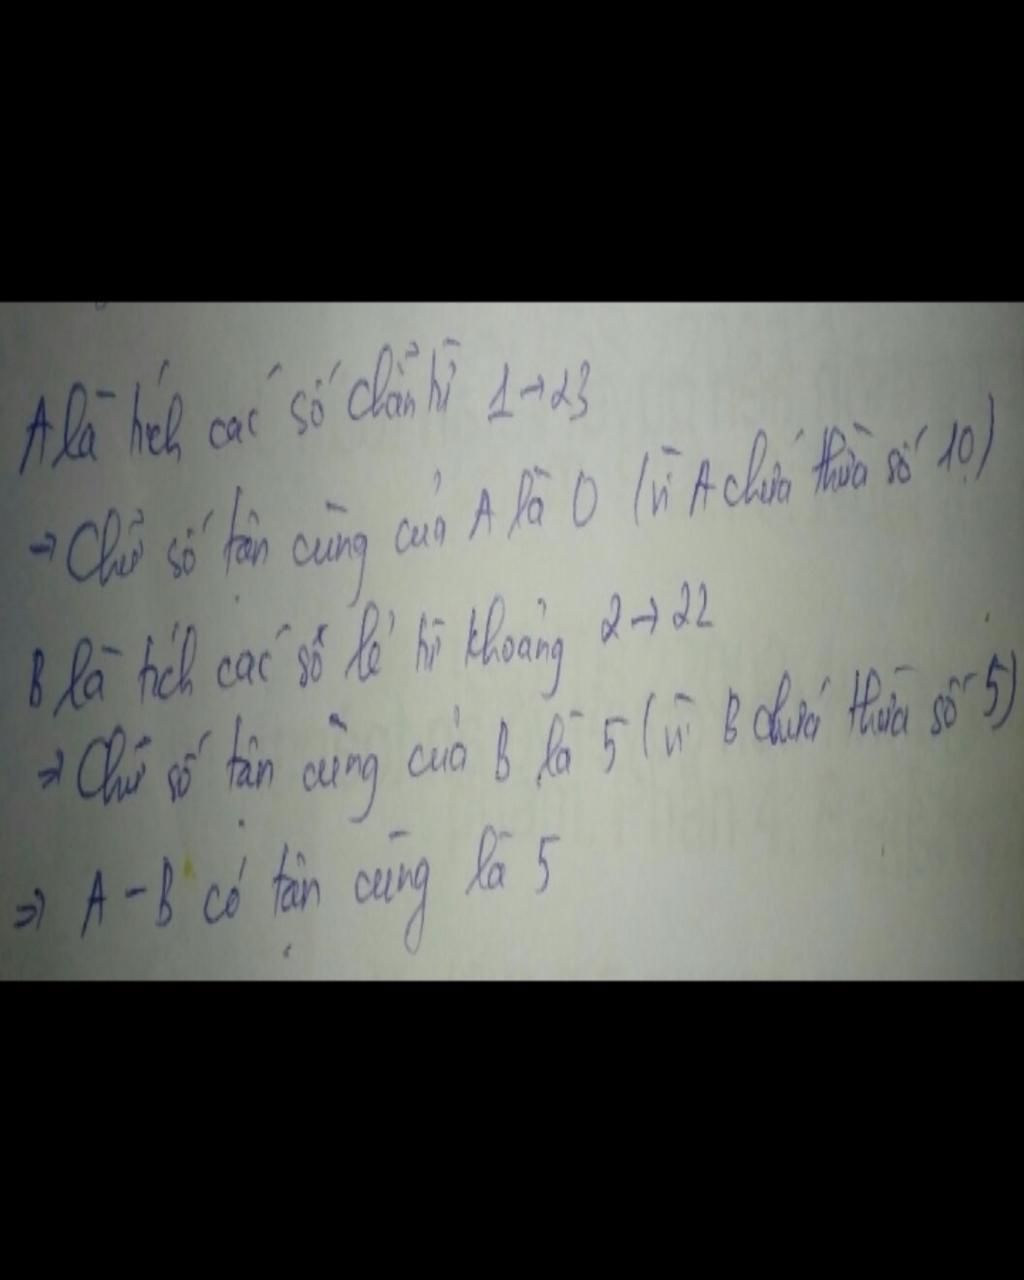 A là tích các số chẵn từ 1→23
→ Chữ số tận cùng của A là 0 (vì A chứa thừa số 10)
B là tích các số lẻ từ khoảng 2→22
⇒ Chữ số tận cùng của B là 5 (vì B chứa thừa số 5)
⇒ A - B có tận cùng là 5